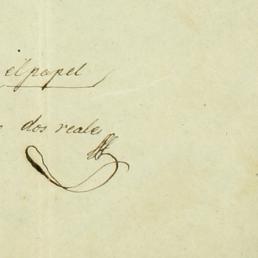 el papel
dos reales